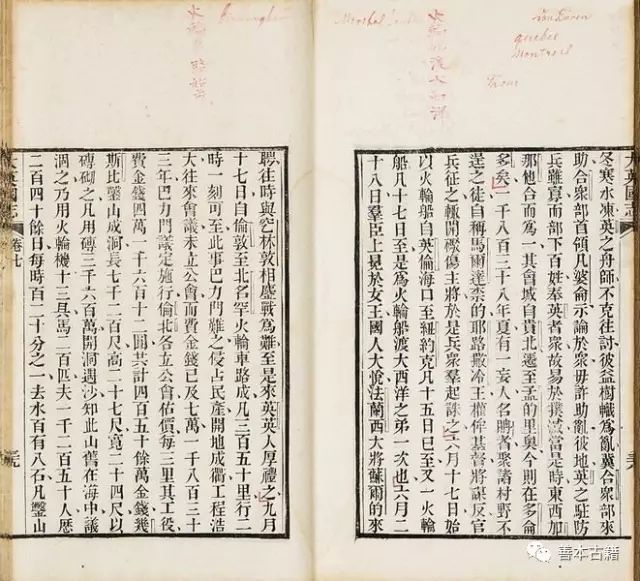 van Buren
quebec
Montreal
Thom
火輪船渡大西洋
冬寒水凍英之舟師不克往討彼益樹幟為亂冀合衆部來
助合衆部首領凡婆侖示諭於衆毋許助亂彼地英之駐防
兵雖寡而部下百姓奉英者衆故易於撲滅當是時東西加
那他合而為一其會城自貴北遷至孟的里奥今則在多侖
多矣一千八百三十八年夏有一妄人名聘者聚諸村野不
逞之徒自稱馬爾達柰的耶路撒冷王權侔基督將謀反官
兵征之輙開礮傷主將於是兵衆羣起誅之六月十七日始
以火輪船自英倫海口至紐約克凡十五日已至又一火輪
船凡十七日至是為火輪船渡大西洋之弟一次也六月二
十八日羣臣上冕於女王國人大悦法蘭西大將蘇爾的來
聘往時與空林敦相鏖戰為難至是來英英人厚禮之九月
十七日自倫敦至北名罕火輪車路成凡三百五十里行二
時一刻可至此事巴力門難之侵占民產開地成衢工程浩
大往來會議未立公會而費金錢已及七萬一千八百三十
三年巴力門議定施行倫北各立公會估價每三里其工役
費金錢四萬一千六百十二圓共計四百五十餘萬金錢幾
斯比鑿山成洞長七千二百尺高二十七尺寬二十四尺以
磚砌之凡用磚三千六百萬開洞遇沙知此山舊在海中議
涸之乃用火輪機十三具馬二百匹夫一千二百五十人歷
二百四十餘日每時百二十分之一去水百有八石凡鑿山
大英國志
卷七
善本古籍